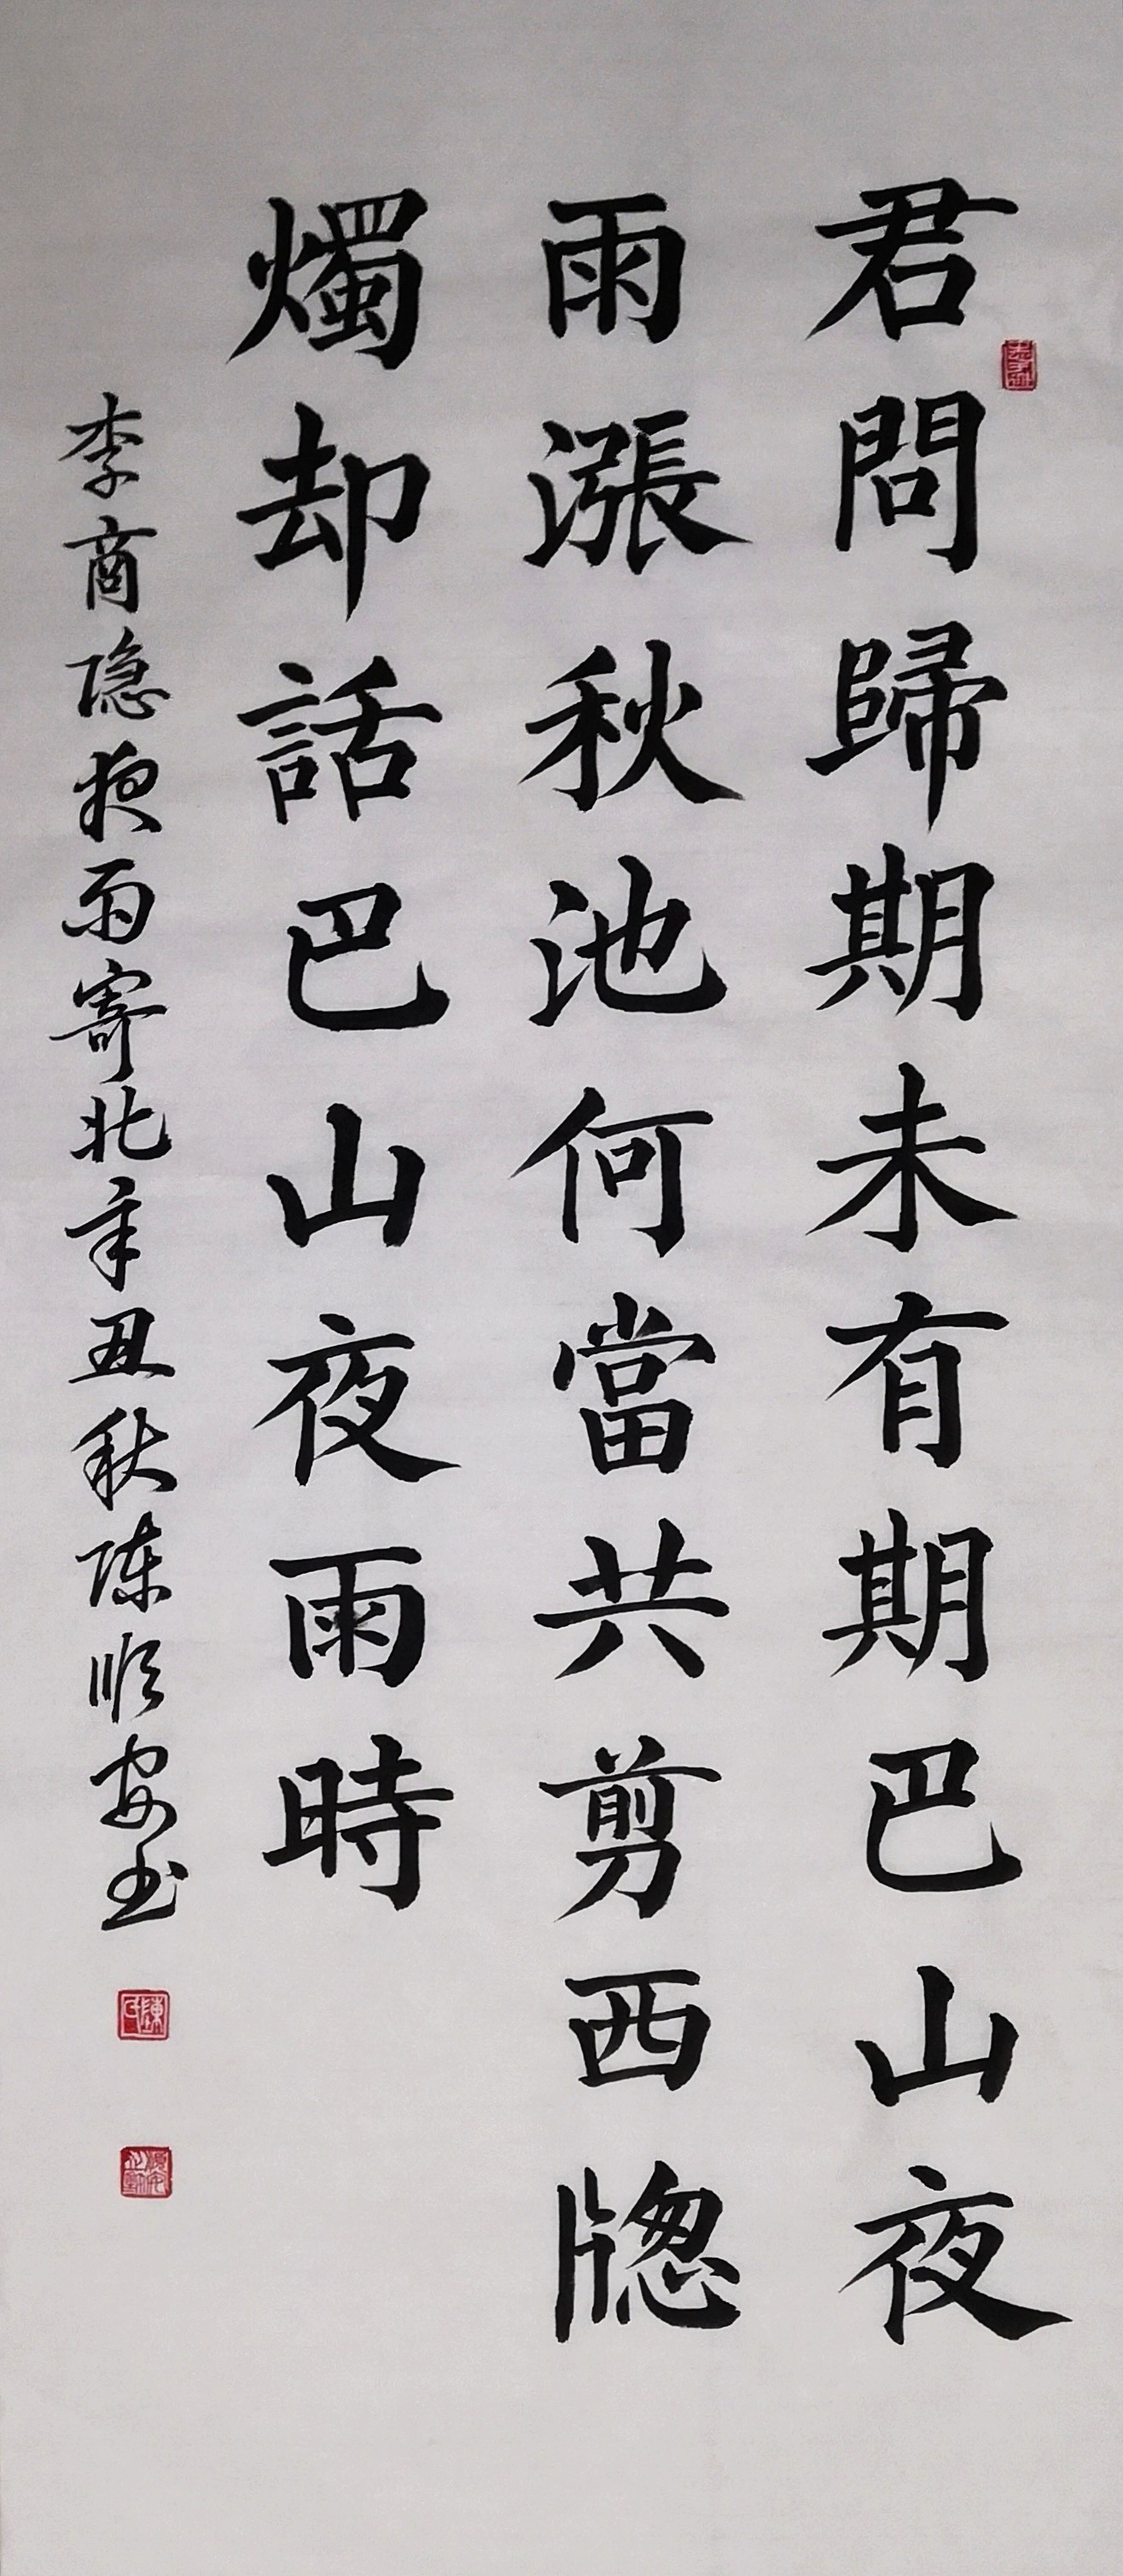 君問歸期未有期巴山夜
雨漲秋池何當共剪西牕
燭却話巴山夜雨時
李商隐夜雨寄北辛丑秋陈顺安书
陳氏